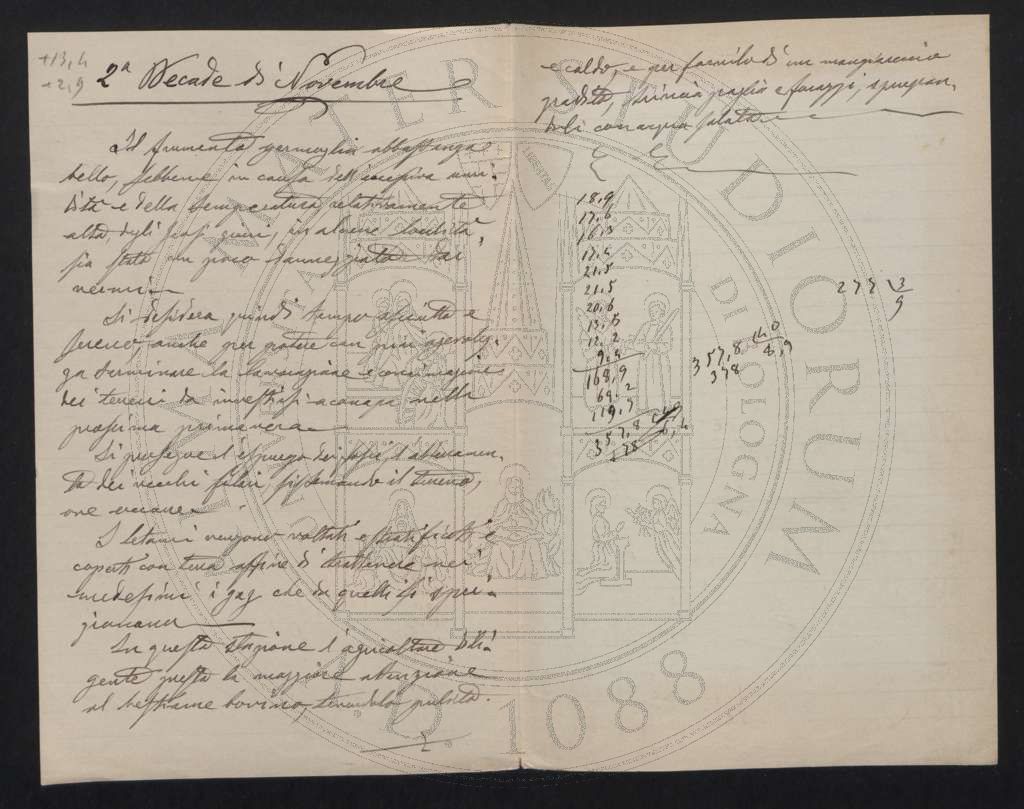 +13,4
+2,9
2ª Decade di Novembre
Il frumento germoglia abbastanza
bello, sebbene in causa dell'eccessiva umi-
dità e della temperatura relativamente
alta, dagli in alcune località,
sia stato un poco danneggiato dai
vermi.
Si desidera quindi tempo asciutto e
sereno, anche per potere con più agevolez-
za terminare la lavorazione e concimazione
dei terreni da investirsi a canapa nella
prossima primavera.
Si prosegue l'espurgo dei fossi, l'atterramen-
to dei vecchi filari, sistemando il terreno,
ove occorre.
I letami vengono voltati e stratificati e
coperti con terra affine di trattenere nei
medesimi i gaz che da quelli si spri-
gionano
In questa stagione l'agricoltore dili-
gente presta la maggiore attenzione
al bestiame bovino, tenendolo pulito
e caldo, e per fornirlo di un mangiare
gradito, trincia paglia e foraggi, spurgan-
doli con acqua salata
18,9
17,6
16,3
17,4
21,5
21,5
20,6
13,5
12,2
9,4
168,9
69,2
119,7
357,8
378
357,8 40
378 8,9
275 3
9
ALMA MATER STUDIORUM
A.D. 1088
DI BOLOGNA